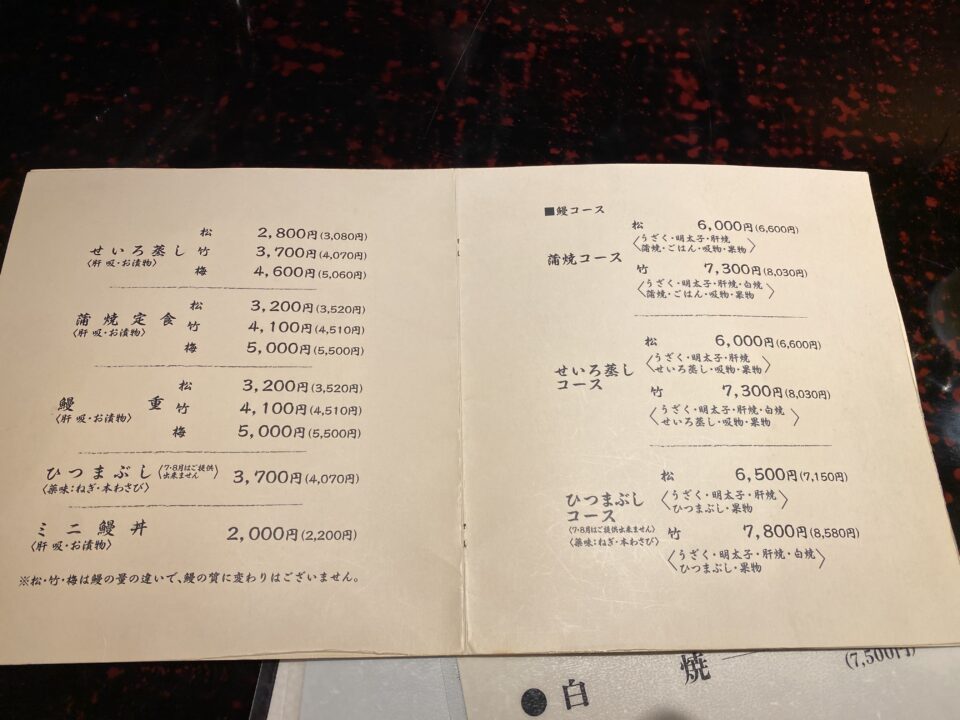 松 2,800円(3,080円)
せいろ蒸し 竹 3,700円(4,070円)
〈肝吸・お漬物〉
梅 4,600円(5,060円)
松 3,200円(3,520円)
蒲焼定食 竹 4,100円(4,510円)
〈肝吸・お漬物〉
梅 5,000円(5,500円)
松 3,200円(3,520円)
鰻重 竹 4,100円(4,510円)
〈肝吸・お漬物〉
梅 5,000円(5,500円)
ひつまぶし〈7・8月はご提供出来ません〉 3,700円(4,070円)
〈薬味:ねぎ・本わさび〉
ミニ鰻丼 2,000円(2,200円)
〈肝吸・お漬物〉
※松・竹・梅は鰻の量の違いで、鰻の質に変わりはございません。
■鰻コース
松 6,000円(6,600円)
〈うざく・明太子・肝焼
蒲焼・ごはん・吸物・果物〉
蒲焼コース
竹 7,300円(8,030円)
〈うざく・明太子・肝焼・白焼
蒲焼・ごはん・吸物・果物〉
松 6,000円(6,600円)
〈うざく・明太子・肝焼
せいろ蒸し・吸物・果物〉
せいろ蒸し
コース
竹 7,300円(8,030円)
〈うざく・明太子・肝焼・白焼
せいろ蒸し・吸物・果物〉
松 6,500円(7,150円)
〈うざく・明太子・肝焼
ひつまぶし・果物〉
ひつまぶし
コース
〈7・8月はご提供出来ません〉
〈薬味:ねぎ・本わさび〉
竹 7,800円(8,580円)
〈うざく・明太子・肝焼・白焼
ひつまぶし・果物〉
●白焼 (7,500円)